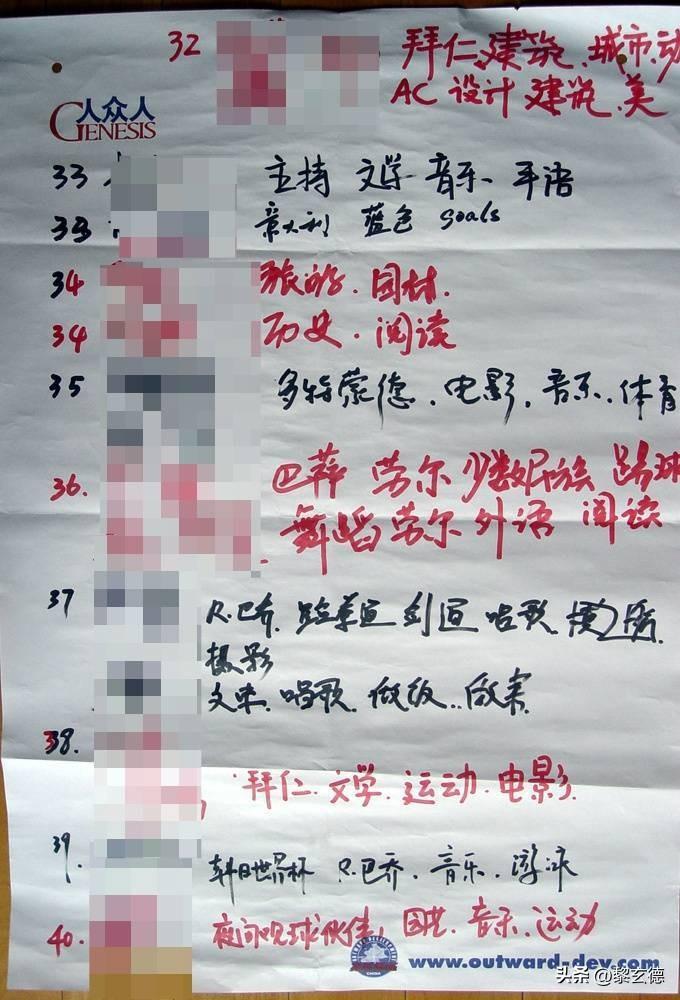 32 拜仁.建筑.城市.动
AC 设计 建筑.美
人众人
GENESIS
33 主持 文学 音乐 手语
33 意大利 蓝色 goals
34 旅游.园林.
34 历史.阅读
35 多特蒙德.电影.音乐.体育
36. 巴萨 劳尔 少数民族 踢球
舞蹈 劳尔 外语 阅读
37 R.巴乔. 跆拳道 剑道 唱歌.
摄影
唱歌.做饭..
38. 拜仁.文学.运动.电影.
39. 韩日世界杯 R.巴乔.音乐.游泳
40. 夜间观球伙伴, 音乐.运动
CHINA
www.outward-dev.com
头条 @黎玄德